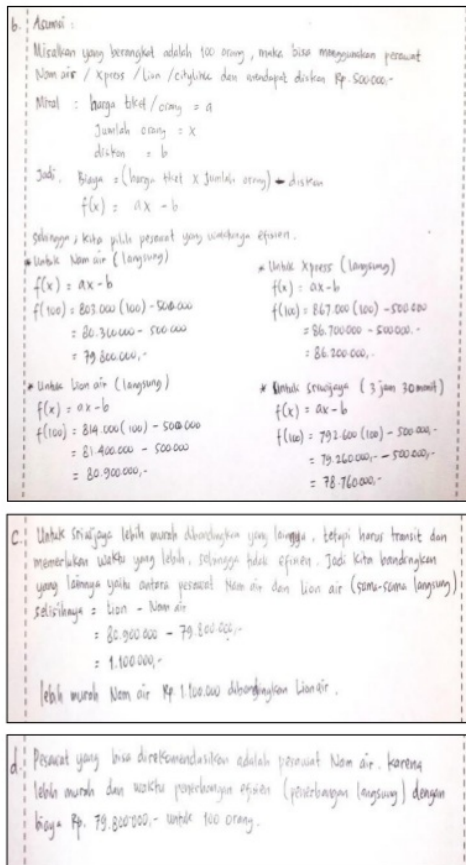 b. Asumsi :
Misalkan yang berangkat adalah 100 orang, maka bisa menggunakan pesawat
Nam air / Xpress / Lion / citylink dan mendapat diskon Rp. 500.000,-
Misal : harga tiket / orang = a
Jumlah orang = x
diskon = b
Jadi, Biaya = (harga tiket x jumlah orang) - diskon
f(x) = ax - b
sehingga, kita pilih pesawat yang waktunya efisien.
* Untuk Nam air (langsung)
f(x) = ax - b
f(100) = 803.000 (100) - 500.000
= 80.300.000 - 500.000
= 79.800.000,-
* Untuk Xpress (langsung)
f(x) = ax - b
f(100) = 867.000 (100) - 500.000
= 86.700.000 - 500.000.-
= 86.200.000,-
* Untuk Lion air (langsung)
f(x) = ax - b
f(100) = 814.000 (100) - 500.000
= 81.400.000 - 500.000
= 80.900.000,-
* Untuk Sriwijaya (3 jam 30 menit)
f(x) = ax - b
f(100) = 792.600 (100) - 500.000,-
= 79.260.000,- - 500.000,-
= 78.760.000,-
C. Untuk Sriwijaya lebih murah dibandingkan yang lainnya, tetapi harus transit dan
memerlukan waktu yang lebih, sehingga tidak efisien. Jadi kita bandingkan
yang lainnya yaitu antara pesawat Nam air dan Lion air (sama-sama langsung)
selisihnya = Lion - Nam air
= 80.900.000 - 79.800.000,-
= 1.100.000,-
lebih murah Nam air Rp 1.100.000 dibandingkan Lion air.
d. Pesawat yang bisa direkomendasikan adalah pesawat Nam air. karena
lebih murah dan waktu penerbangan efisien (penerbangan langsung) dengan
biaya Rp. 79.800.000,- untuk 100 orang.